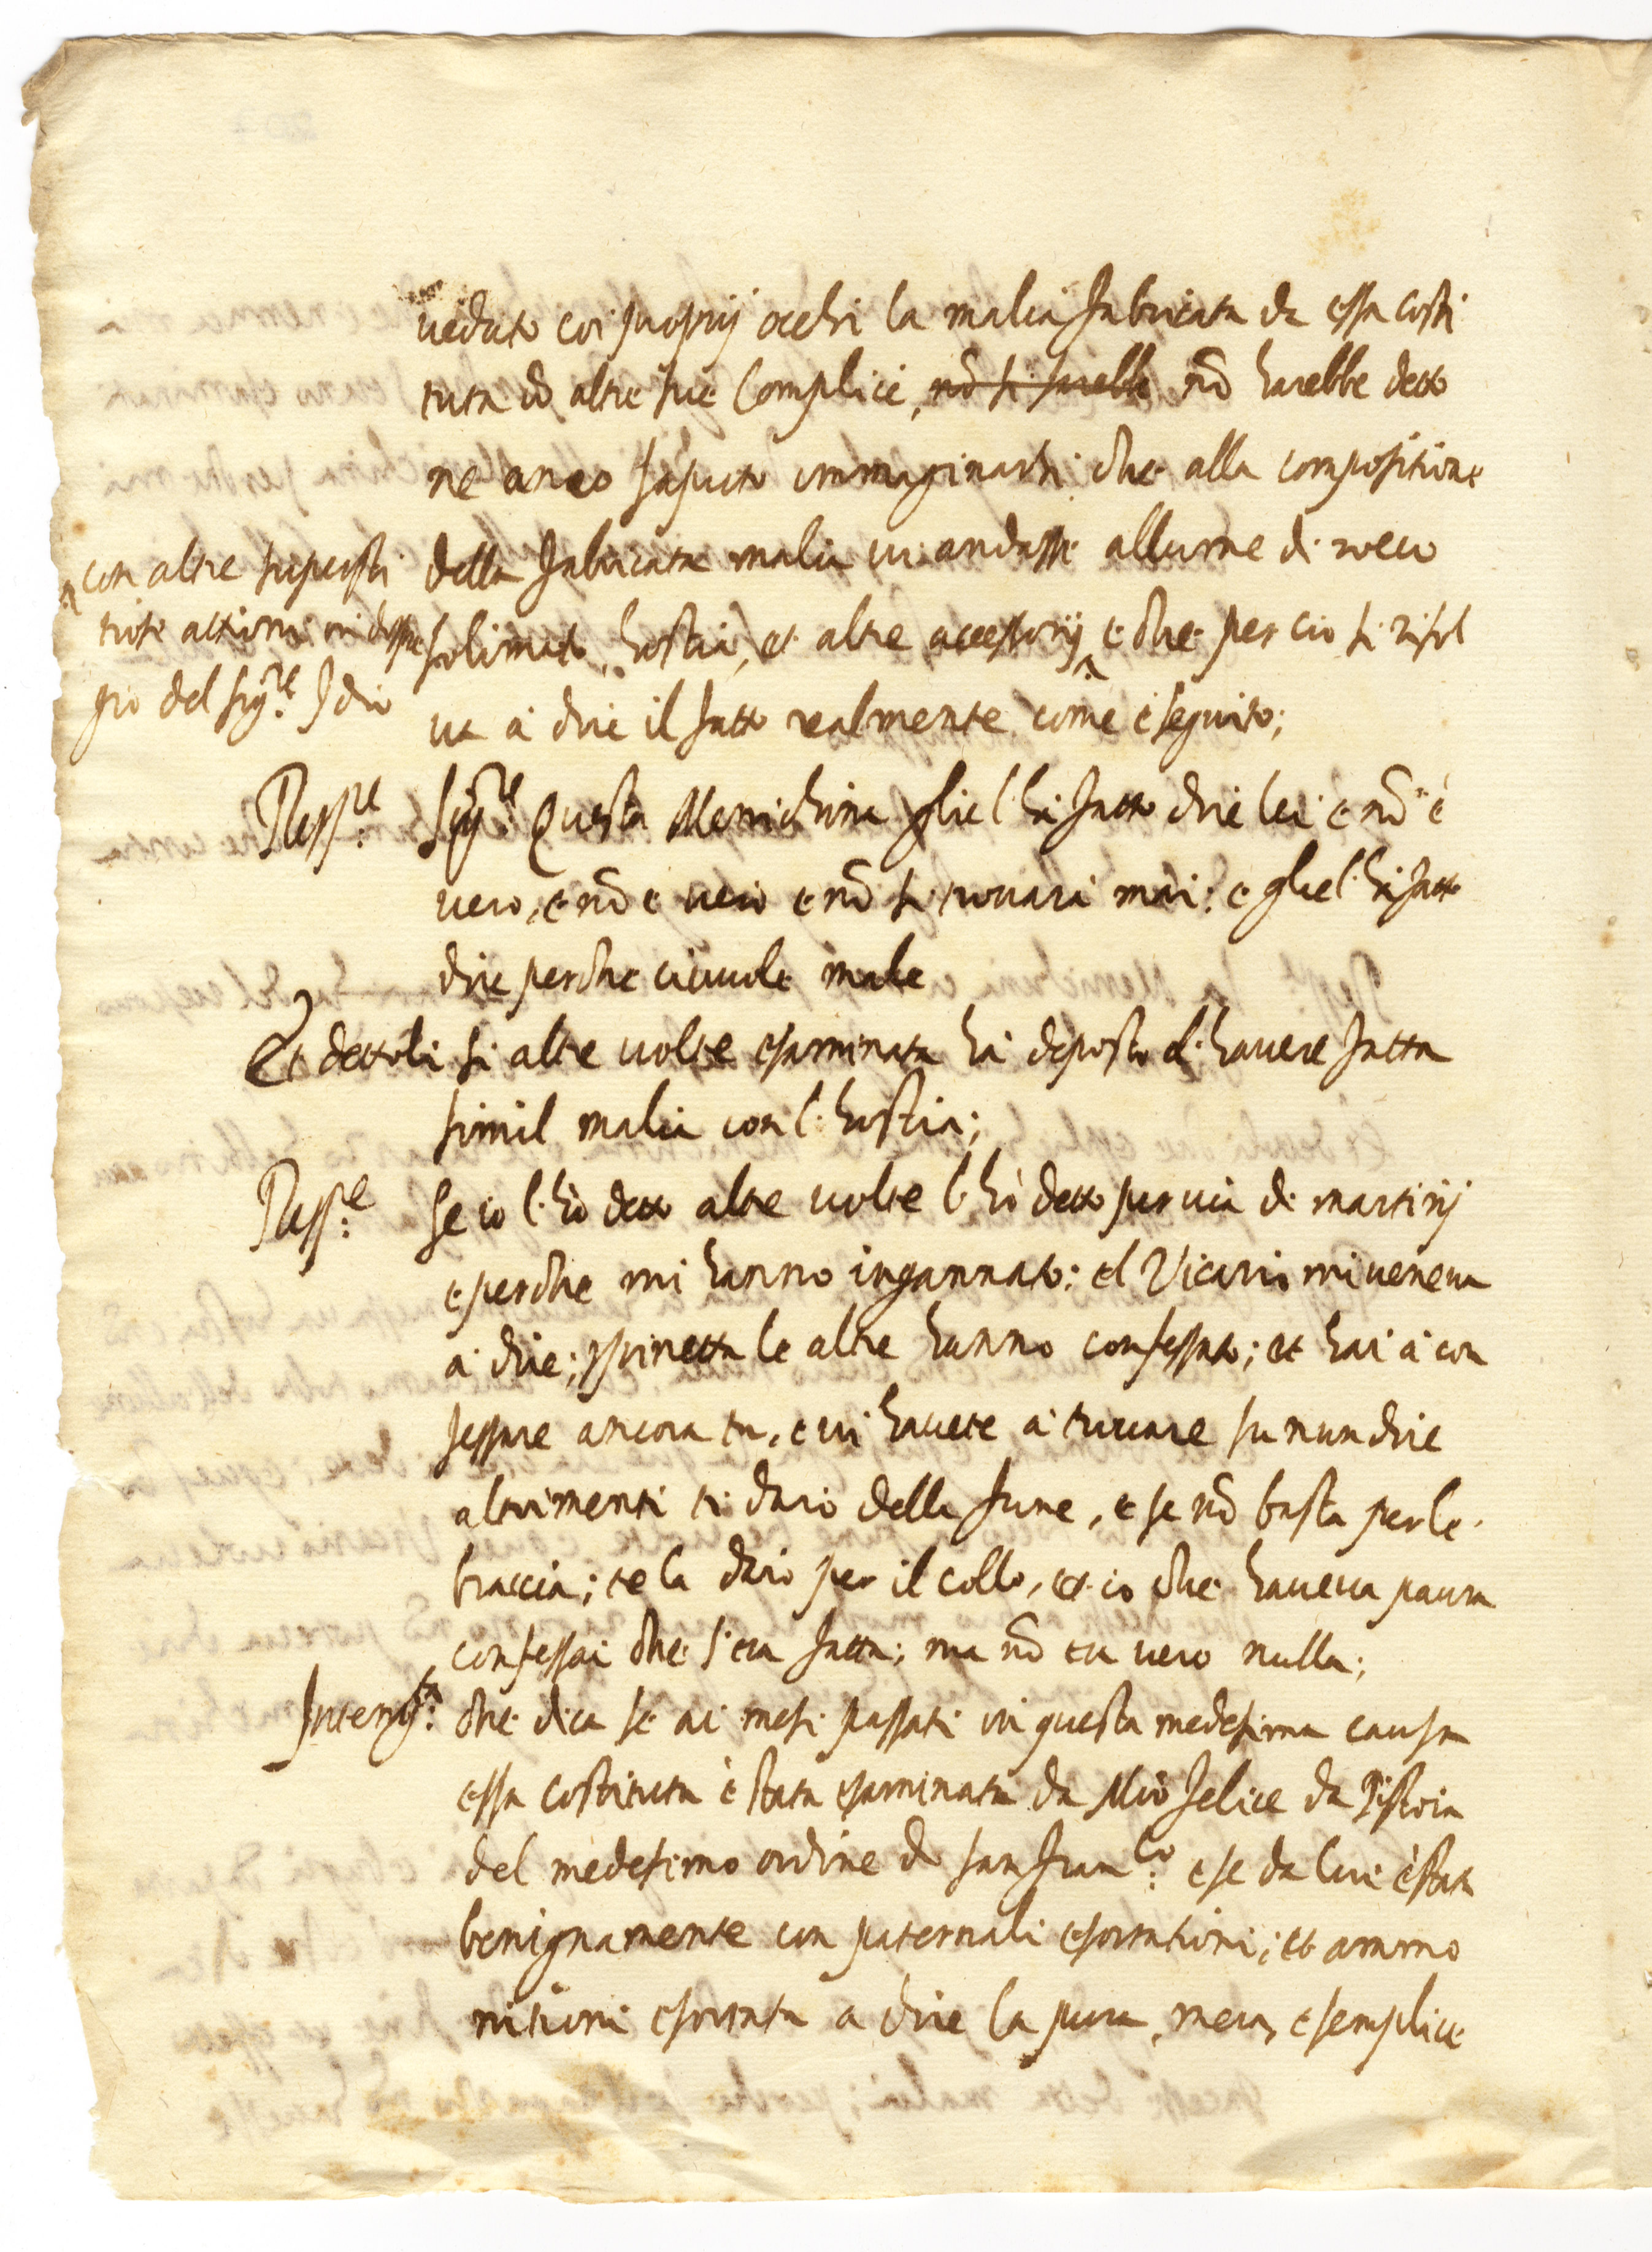 ueduto coi proprij occhi la malia fabricata da essa costi
tuta et altre sue Complice, nõ si sarebbe nõ harebbe detto
ne anco saputo immaginarsi che alla compositione
della fabricata malia vi andasse allume di rocco
solimato, hostia, et altre accessorij ^ e che per cio si risol
^ con altre supersti
tiose attioni in dispre
gio del sig.re Idio
va à dire il fatto realmente come è seguito;
Resp.e Sig.re Questa Menichina gliel'hà fatto dire lei e nõ è
uero, e nõ è uero e nõ si trouarà mai: e gliel'hà fatto
dire perche ci uuole male
Et dettoli si altre uolte esaminata hà deposto d'hauere fatta
simil malia con l'hostia;
Resp.e Se io l'hò detto altre uolte l'hò detto per uia di martirij
e perche mi hanno ingannato: el Vicario mi veneua
à dire; spinetta le altre hanno confessato; et hai à con
fessare ancora tu, e vi hauete à trouare fu mandire
altrimenti ti darò della fune, e se nõ basta per le
braccia; te la darò per il collo, et io che haueua paura
confessai che s'era fatta; ma nõ era uero nulla;
Interrog.ta che dica se ai mesi passati in questa medesima causa
essa costituta è stata esaminata da Mrõ Felice da Pistoia
del medesimo ordine di san Fran.co e se da lui è stata
benignamente con paternali esortationi; et ammo
nitioni esortata a dire la pura, mera, e semplice